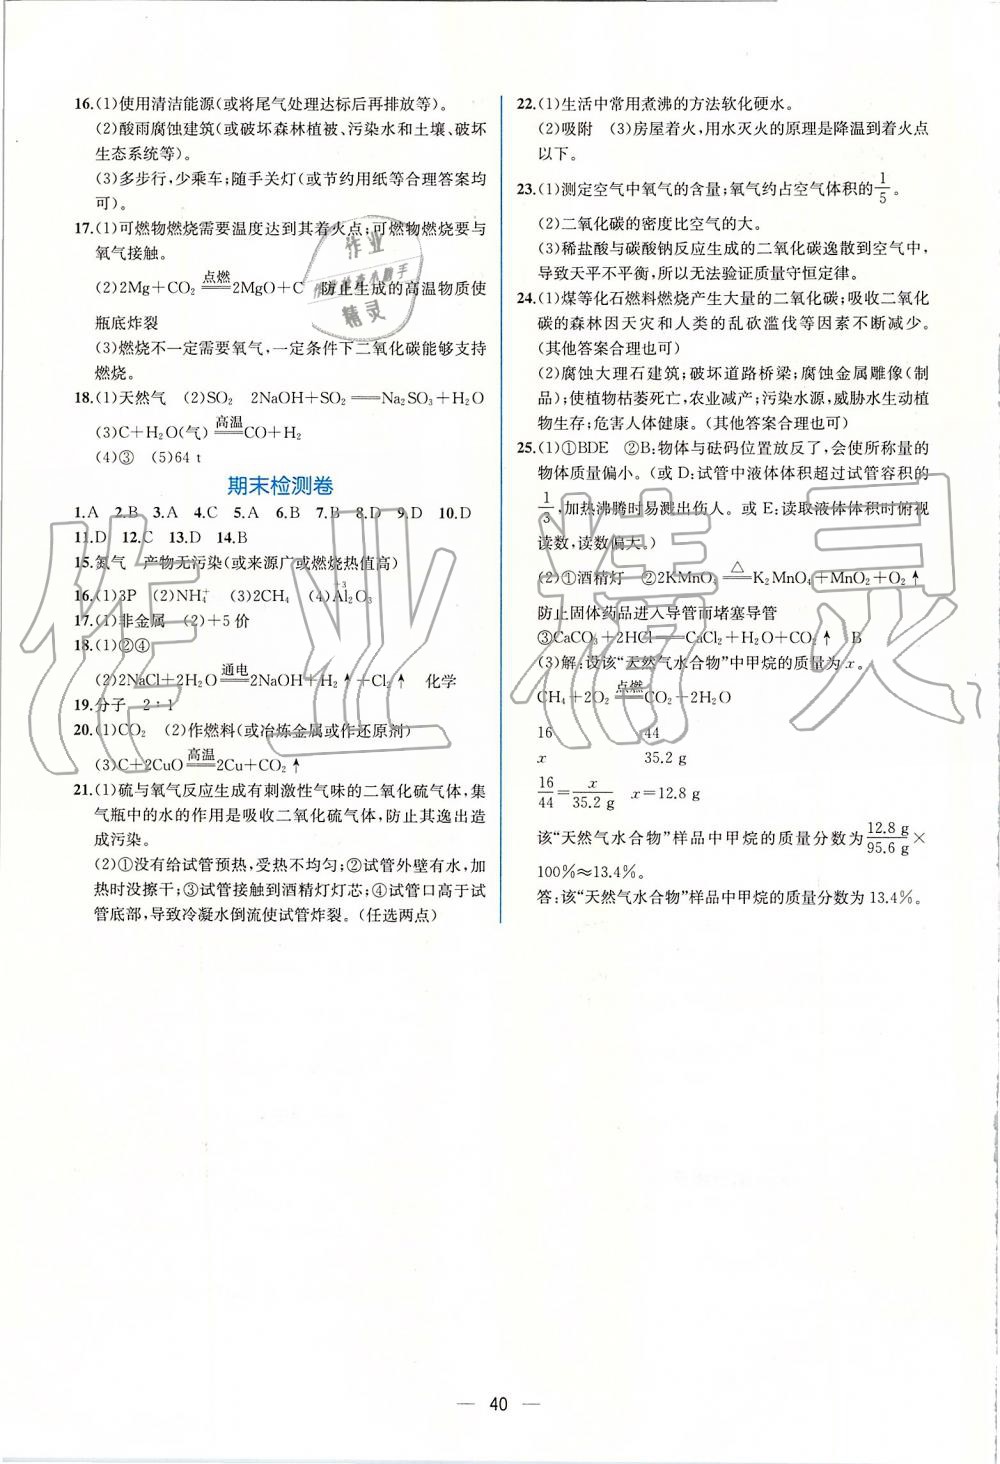 16.(1)使用清洁能源(或将尾气处理达标后再排放等)。
(2)酸雨腐蚀建筑(或破坏森林植被、污染水和土壤、破坏
生态系统等)。
(3)多步行,少乘车;随手关灯(或节约用纸等合理答案均
可)。
17.(1)可燃物燃烧需要温度达到其着火点;可燃物燃烧要与
氧气接触。
(2)2Mg+CO₂ 点燃══ 2MgO+C 防止生成的高温物质使
瓶底炸裂
(3)燃烧不一定需要氧气,一定条件下二氧化碳能够支持
燃烧。
18.(1)天然气 (2)SO₂ 2NaOH+SO₂══Na₂SO₃+H₂O
(3)C+H₂O(气) 高温══ CO+H₂
(4)③ (5)64 t
期末检测卷
1.A 2.B 3.A 4.C 5.A 6.B 7.B 8.D 9.D 10.D
11.D 12.C 13.D 14.B
15.氮气 产物无污染(或来源广或燃烧热值高)
16.(1)3P (2)NH₄⁺ (3)2CH₄ (4)Al₂O₃ +3
17.(1)非金属 (2)+5价
18.(1)②④
(2)2NaCl+2H₂O 通电══ 2NaOH+H₂↑+Cl₂↑ 化学
19.分子 2:1
20.(1)CO₂ (2)作燃料(或冶炼金属或作还原剂)
(3)C+2CuO 高温══ 2Cu+CO₂↑
21.(1)硫与氧气反应生成有刺激性气味的二氧化硫气体,集
气瓶中的水的作用是吸收二氧化硫气体,防止其逸出造
成污染。
(2)①没有给试管预热,受热不均匀;②试管外壁有水,加
热时没擦干;③试管接触到酒精灯灯芯;④试管口高于试
管底部,导致冷凝水倒流使试管炸裂。(任选两点)
22.(1)生活中常用煮沸的方法软化硬水。
(2)吸附 (3)房屋着火,用水灭火的原理是降温到着火点
以下。
23.(1)测定空气中氧气的含量;氧气约占空气体积的1/5。
(2)二氧化碳的密度比空气的大。
(3)稀盐酸与碳酸钠反应生成的二氧化碳逸散到空气中,
导致天平不平衡,所以无法验证质量守恒定律。
24.(1)煤等化石燃料燃烧产生大量的二氧化碳;吸收二氧化
碳的森林因天灾和人类的乱砍滥伐等因素不断减少。
(其他答案合理也可)
(2)腐蚀大理石建筑;破坏道路桥梁;腐蚀金属雕像(制
品);使植物枯萎死亡,农业减产;污染水源,威胁水生动植
物生存;危害人体健康。(其他答案合理也可)
25.(1)①BDE ②B:物体与砝码位置放反了,会使所称量的
物体质量偏小。(或D:试管中液体体积超过试管容积的
1/3,加热沸腾时易溅出伤人。或E:读取液体体积时俯视
读数,读数偏大。)
(2)①酒精灯 ②2KMnO₄ △══ K₂MnO₄+MnO₂+O₂↑
防止固体药品进入导管而堵塞导管
③CaCO₃+2HCl══CaCl₂+H₂O+CO₂↑ B
(3)解:设该“天然气水合物”中甲烷的质量为x。
CH₄+2O₂ 点燃══ CO₂+2H₂O
16 44
x 35.2 g
16/44=x/35.2 g x=12.8 g
该“天然气水合物”样品中甲烷的质量分数为12.8 g/95.6 g×
100%≈13.4%。
答:该“天然气水合物”样品中甲烷的质量分数为13.4%。
作业精灵
作业
精灵
— 40 —